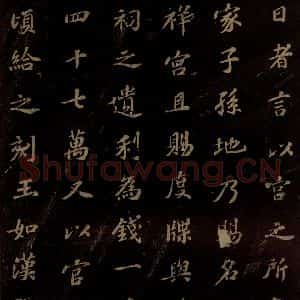 日者言以宫之所
家子孫地乃賜名
祥宫且賜度牒與
祠之遺利為錢一
四十七萬又以官
頃給之刻玉如漢
Shufawang.CN